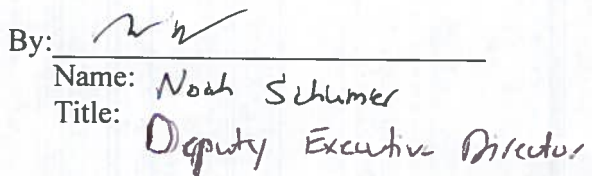 By:
Name: Noah Schumer
Title:
Deputy Executive Director